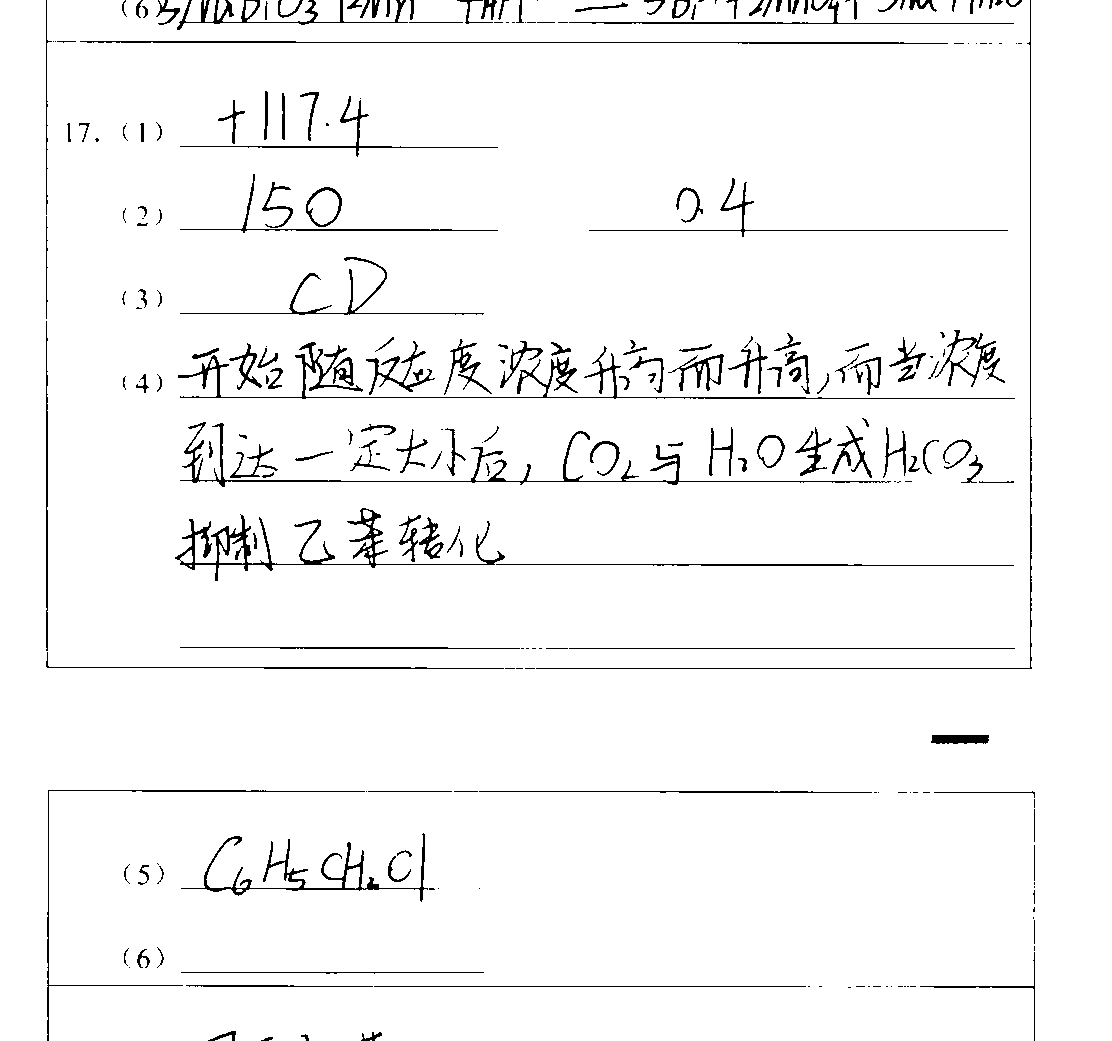 17. (1) +117.4
(2) 150 0.4
(3) CD
(4) 开始随反应度浓度升高而升高,而当浓度
到达一定大小后, CO₂与H₂O生成H₂CO₃
抑制乙苯转化
(5) C₆H₅CH₂Cl
(6)